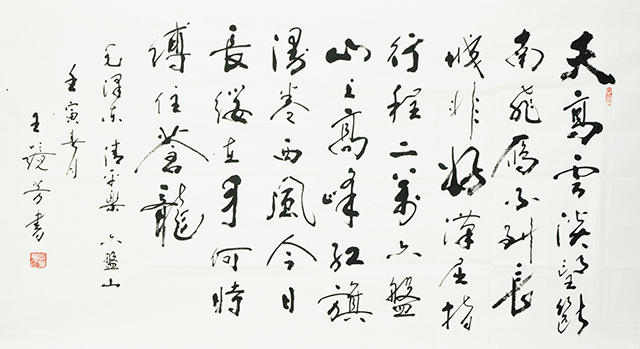 天高云淡望断
南飞雁不到长
城非好漢屈指
行程二萬六盤
山上高峰红旗
漫卷西風今日
長缨在手何時
缚住蒼龍
毛澤东清平樂六盤山
壬寅春月
王鏡芳書